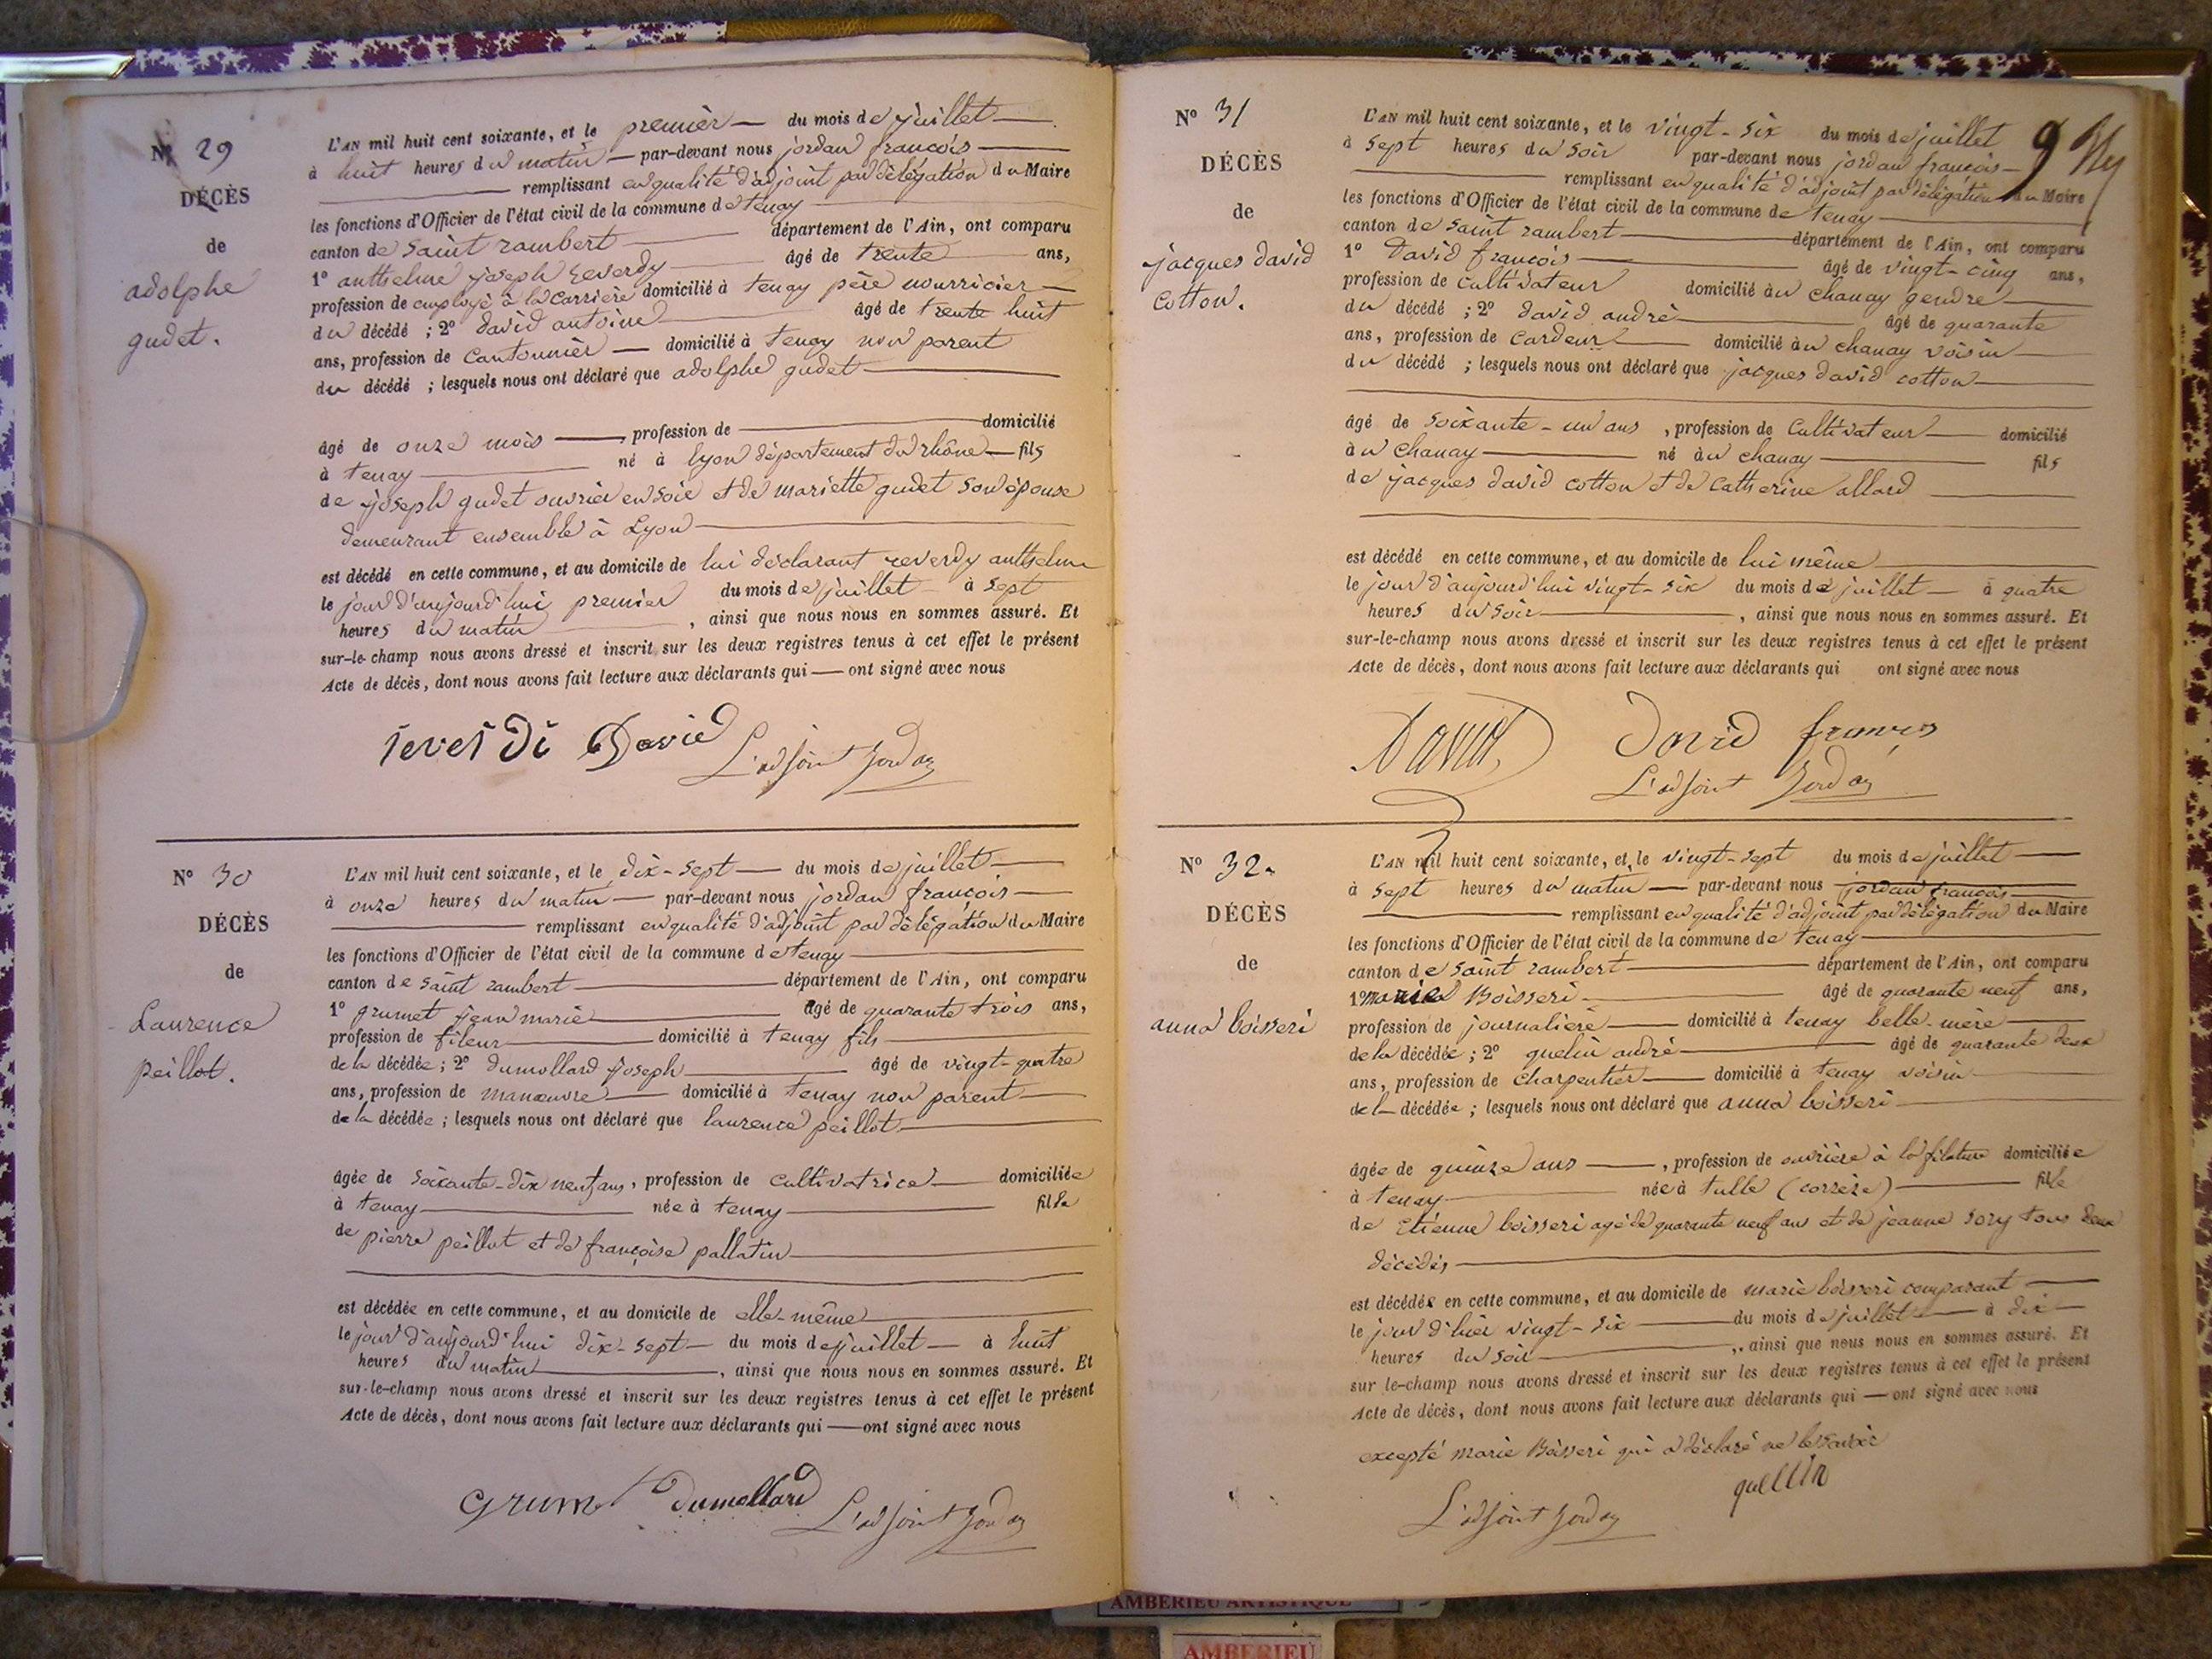 N° 29
DÉCÈS
de
adolphe
gudet.
L'AN mil huit cent soixante, et le premier — du mois de juillet —
à huit heures du matin — par-devant nous jordan françois —
— remplissant en qualité d'adjoint par délégation du Maire
les fonctions d'Officier de l'état civil de la commune de tenay —
canton de Saint rambert — département de l'Ain, ont comparu
1° anthelme joseph reverdy — âgé de trente ans,
profession de employé à la carrière domicilié à tenay père nourricier —
du décédé ; 2° david antoine — âgé de trente huit
ans, profession de cantonnier — domicilié à tenay non parent
du décédé ; lesquels nous ont déclaré que adolphe gudet —
âgé de onze mois —, profession de — domicilié
à tenay — né à lyon département du rhône — fils
de joseph gudet ouvrier en soie et de mariette gudet son épouse
demeurant ensemble à Lyon —
est décédé en cette commune, et au domicile de lui déclarant reverdy anthelme
le jour d'aujourd'hui premier du mois de juillet à sept
heures du matin —, ainsi que nous nous en sommes assuré. Et
sur-le-champ nous avons dressé et inscrit sur les deux registres tenus à cet effet le présent
Acte de décès, dont nous avons fait lecture aux déclarants qui — ont signé avec nous
reverdi David L'adjoint Jordan
N° 30
DÉCÈS
de
Laurence
peillot.
L'AN mil huit cent soixante, et le dix-sept — du mois de juillet —
à onze heures du matin — par-devant nous jordan françois —
— remplissant en qualité d'adjoint par délégation du Maire
les fonctions d'Officier de l'état civil de la commune de tenay —
canton de saint rambert — département de l'Ain, ont comparu
1° grumet jean marie — âgé de quarante trois ans,
profession de fileur — domicilié à tenay fils —
de la décédée ; 2° dumollard joseph — âgé de vingt-quatre
ans, profession de manœuvre — domicilié à tenay non parent —
de la décédée ; lesquels nous ont déclaré que laurence peillot —
âgée de soixante-dix neuf ans, profession de cultivatrice — domiciliée
à tenay — née à tenay — fille
de pierre peillot et de françoise pallatin —
est décédée en cette commune, et au domicile de elle-même —
le jour d'aujourd'hui dix-sept — du mois de juillet — à huit
heures du matin —, ainsi que nous nous en sommes assuré. Et
sur-le-champ nous avons dressé et inscrit sur les deux registres tenus à cet effet le présent
Acte de décès, dont nous avons fait lecture aux déclarants qui — ont signé avec nous
Grumet dumollard L'adjoint Jordan
9
N° 31
DÉCÈS
de
jacques david
cotton.
L'AN mil huit cent soixante, et le vingt-six du mois de juillet
à sept heures du soir par-devant nous jordan françois —
— remplissant en qualité d'adjoint par délégation du Maire
les fonctions d'Officier de l'état civil de la commune de tenay —
canton de saint rambert — département de l'Ain, ont comparu
1° David françois — âgé de vingt-cinq ans,
profession de cultivateur domicilié au chanay gendre —
du décédé ; 2° david andré — âgé de quarante
ans, profession de cardeur — domicilié au chanay voisin —
du décédé ; lesquels nous ont déclaré que jacques david cotton —
âgé de soixante-un ans, profession de cultivateur — domicilié
à au chanay — né au chanay — fils
de jacques david cotton et de catherine allard —
est décédé en cette commune, et au domicile de lui même —
le jour d'aujourd'hui vingt-six du mois de juillet — à quatre
heures du soir —, ainsi que nous nous en sommes assuré. Et
sur-le-champ nous avons dressé et inscrit sur les deux registres tenus à cet effet le présent
Acte de décès, dont nous avons fait lecture aux déclarants qui ont signé avec nous
David David françois
L'adjoint Jordan
N° 32.
DÉCÈS
de
anna boisseri
L'AN mil huit cent soixante, et le vingt-sept du mois de juillet —
à sept heures du matin — par-devant nous jordan françois —
— remplissant en qualité d'adjoint par délégation du Maire
les fonctions d'Officier de l'état civil de la commune de tenay —
canton de saint rambert — département de l'Ain, ont comparu
1° marie Boisseri — âgé de quarante neuf ans,
profession de journalière — domicilié à tenay belle-mère —
de la décédée ; 2° quelin andré — âgé de quarante deux
ans, profession de charpentier — domicilié à tenay voisin —
de la décédée ; lesquels nous ont déclaré que anna boisseri —
âgée de quinze ans —, profession de ouvrière à la filature domiciliée
à tenay — née à tulle (corrèze) — fille
de Etienne boisseri agé de quarante neuf ans et de jeanne sory tous deux
décédés —
est décédée en cette commune, et au domicile de marie boisseri comparant —
le jour d'hier vingt-six — du mois de juillet — à dix —
heures du soir —, ainsi que nous nous en sommes assuré. Et
sur le-champ nous avons dressé et inscrit sur les deux registres tenus à cet effet le présent
Acte de décès, dont nous avons fait lecture aux déclarants qui — ont signé avec nous
excepté marie Boisseri qui a déclaré ne le savoir
L'adjoint Jordan quellin
AMBERIEU ARTISTIQUE
AMBERIEU